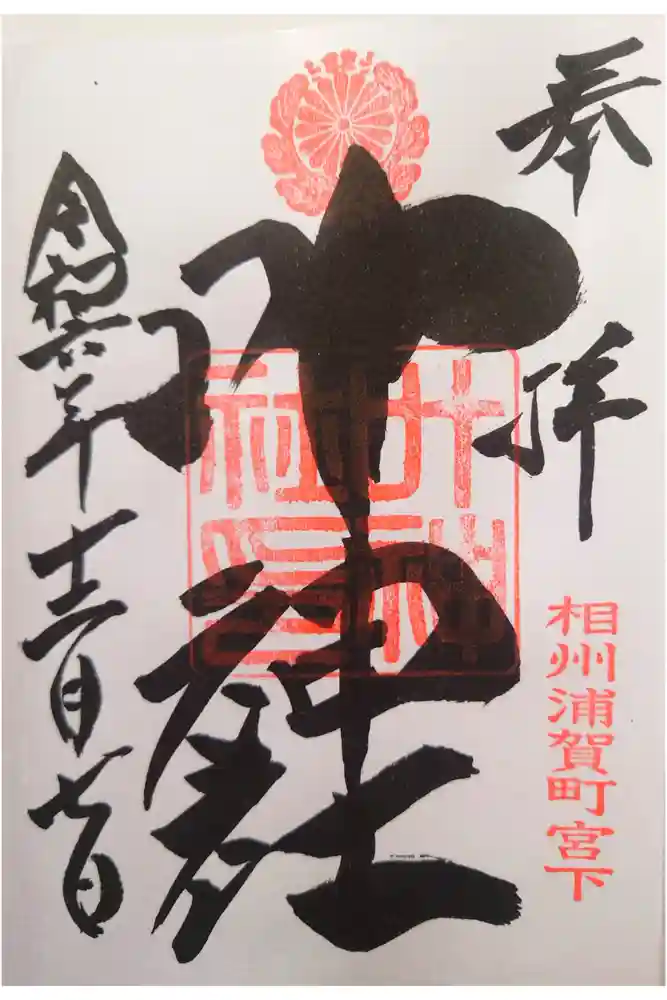 奉拝
相州浦賀町宮下
叶神社
叶神社印
令和六年十二月七日